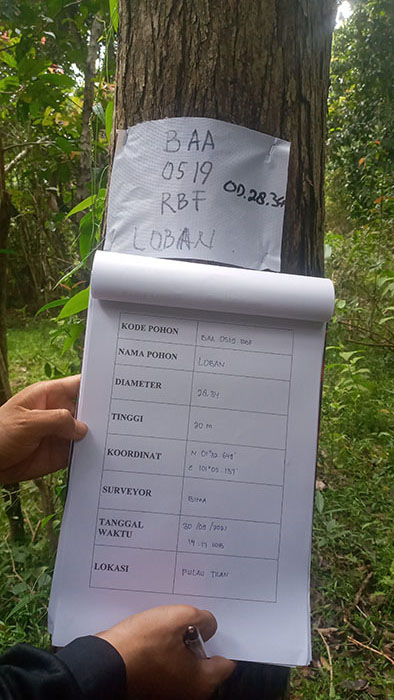 BAA
0519
RBF
OD.28.34
LOBAN
KODE POHON BAA 0519 RBF
NAMA POHON LOBAN
DIAMETER 28.34
TINGGI 20 M
KOORDINAT N 01°
E 101°
SURVEYOR BIMA
TANGGAL
WAKTU
LOKASI PULAU TRAN